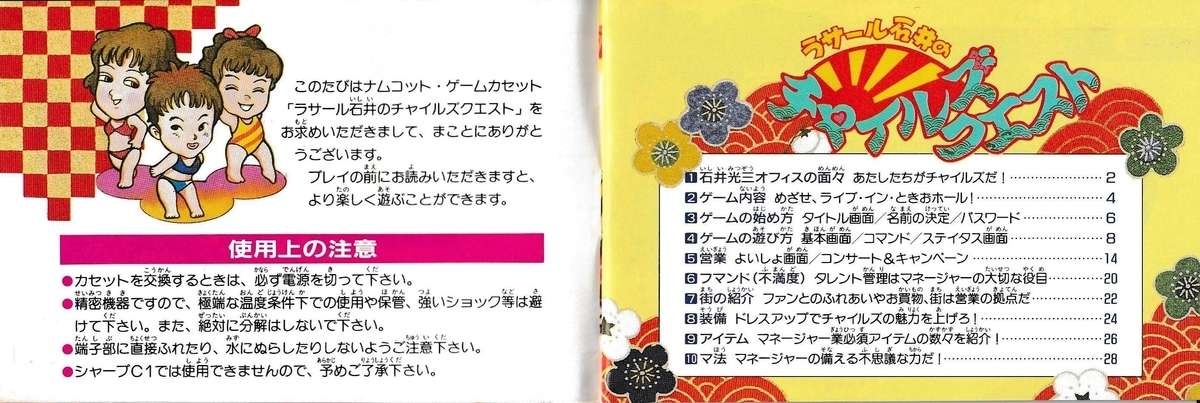 このたびはナムコット・ゲームカセット
「ラサール石井のチャイルズクエスト」を
お求めいただきまして、まことにありがと
うございます。
プレイの前にお読みいただきますと、
より楽しく遊ぶことができます。
使用上の注意
●カセットを交換するときは、必ず電源を切って下さい。
●精密機器ですので、極端な温度条件下での使用や保管、強いショック等は避
けて下さい。また、絶対に分解はしないで下さい。
●端子部に直接ふれたり、水にぬらしたりしないようご注意下さい。
●シャープC1では使用できませんので、予めご了承下さい。
ラサール石井の
チャイルズ
クエスト
1 石井光三オフィスの面々 あたしたちがチャイルズだ！ 2
2 ゲーム内容 めざせ、ライブ・イン・ときおホール！ 4
3 ゲームの始め方 タイトル画面／名前の決定／パスワード 6
4 ゲームの遊び方 基本画面／コマンド／ステイタス画面 8
5 営業 よいしょ画面／コンサート＆キャンペーン 14
6 フマンド（不満度） タレント管理はマネージャーの大切な役目 20
7 街の紹介 ファンとのふれあいやお買物、街は営業の拠点だ 22
8 装備 ドレスアップでチャイルズの魅力を上げろ！ 24
9 アイテム マネージャー業必須アイテムの数々を紹介！ 26
10 マ法 マネージャーの備える不思議な力だ！ 28